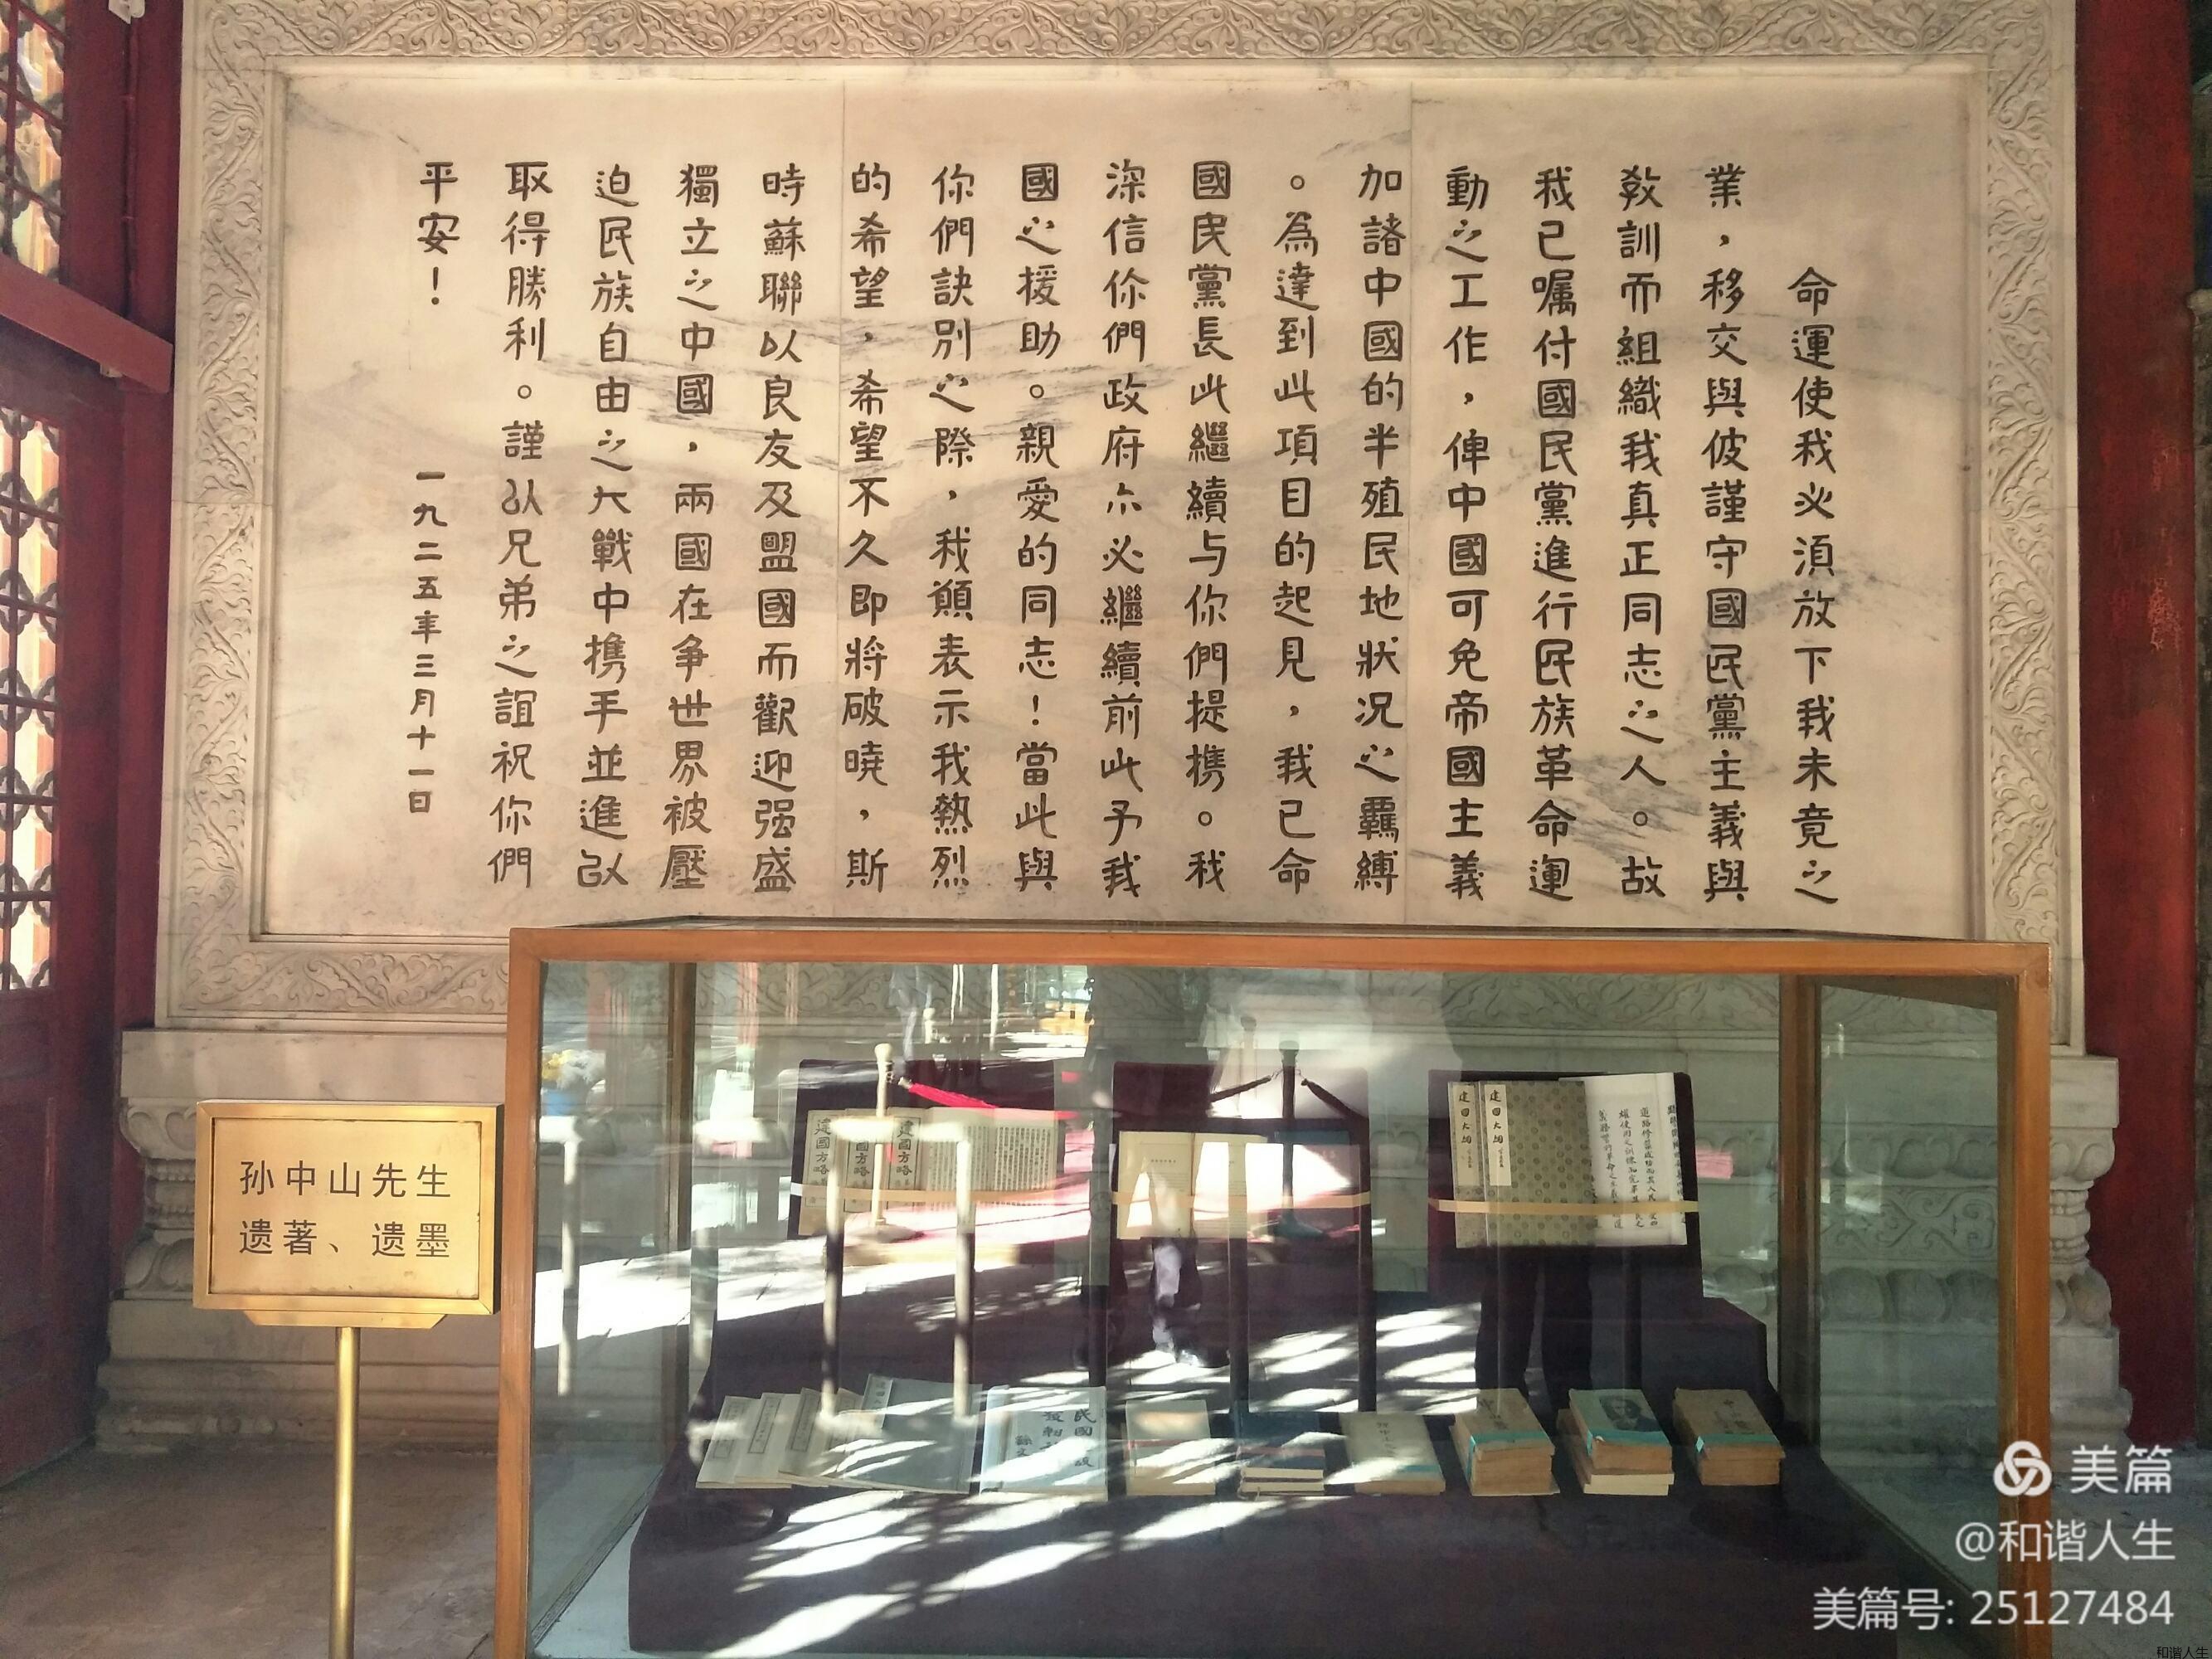 命運使我必須放下我未竟之
業，移交與彼謹守國民黨主義與
教訓而組織我真正同志之人。故
我已嘱付國民黨進行民族革命運
動之工作，俾中國可免帝國主義
加諸中國的半殖民地狀况之羈縛
。為達到此項目的起見，我已命
國民黨長此繼續与你們提携。我
深信你們政府亦必繼續前此予我
國之援助。親愛的同志！當此與
你們訣别之際，我願表示我熱烈
的希望，希望不久即將破曉，斯
時蘇聯以良友及盟國而歡迎强盛
獨立之中國，兩國在争世界被壓
迫民族自由之大戰中携手並進以
取得勝利。謹以兄弟之誼祝你們
平安！
一九二五年三月十一日
孙中山先生
遗著、遗墨
建國方略
建國方略
建國方略
建国大綱
建国大綱
民國
孫文
美篇
@和谐人生
美篇号: 25127484
和谐人生